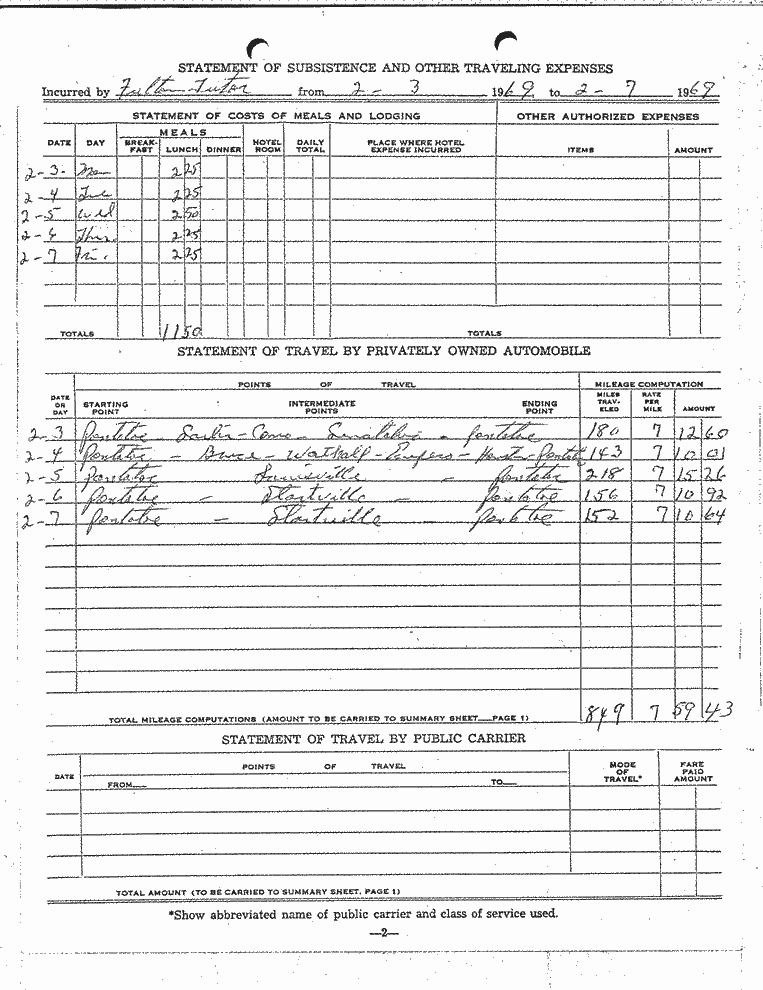 STATEMENT OF SUBSISTENCE AND OTHER TRAVELING EXPENSES
Incurred by Fulton Tutor from 2 - 3 1969 to 2 - 7 1969
STATEMENT OF COSTS OF MEALS AND LODGING OTHER AUTHORIZED EXPENSES
DATE DAY MEALS BREAK-FAST LUNCH DINNER HOTEL ROOM DAILY TOTAL PLACE WHERE HOTEL EXPENSE INCURRED ITEMS AMOUNT
2-3- Mon 2 25
2-4 Tue 2 25
2-5 Wed 2 50
2-6 Thur. 2 25
2-7 Fri. 2 25
TOTALS 11 50 TOTALS
STATEMENT OF TRAVEL BY PRIVATELY OWNED AUTOMOBILE
POINTS OF TRAVEL MILEAGE COMPUTATION
DATE OR DAY STARTING POINT INTERMEDIATE POINTS ENDING POINT MILES TRAV-ELED RATE PER MILE AMOUNT
2-3 Pontotoc - Sardis - Como - Senatobia - Pontotoc 180 7 12 60
2-4 Pontotoc - Bruce - Walthall - - Houston - Pontotoc 143 7 10 01
2-5 Pontotoc Louisville - Pontotoc 218 7 15 26
2-6 Pontotoc - Starkville - Pontotoc 156 7 10 92
2-7 Pontotoc - Starkville Pontotoc 152 7 10 64
TOTAL MILEAGE COMPUTATIONS (AMOUNT TO BE CARRIED TO SUMMARY SHEET—PAGE 1) 849 7 59 43
STATEMENT OF TRAVEL BY PUBLIC CARRIER
DATE POINTS OF TRAVEL MODE OF TRAVEL* FARE PAID AMOUNT
FROM— TO—
TOTAL AMOUNT (TO BE CARRIED TO SUMMARY SHEET, PAGE 1)
*Show abbreviated name of public carrier and class of service used.
—2—